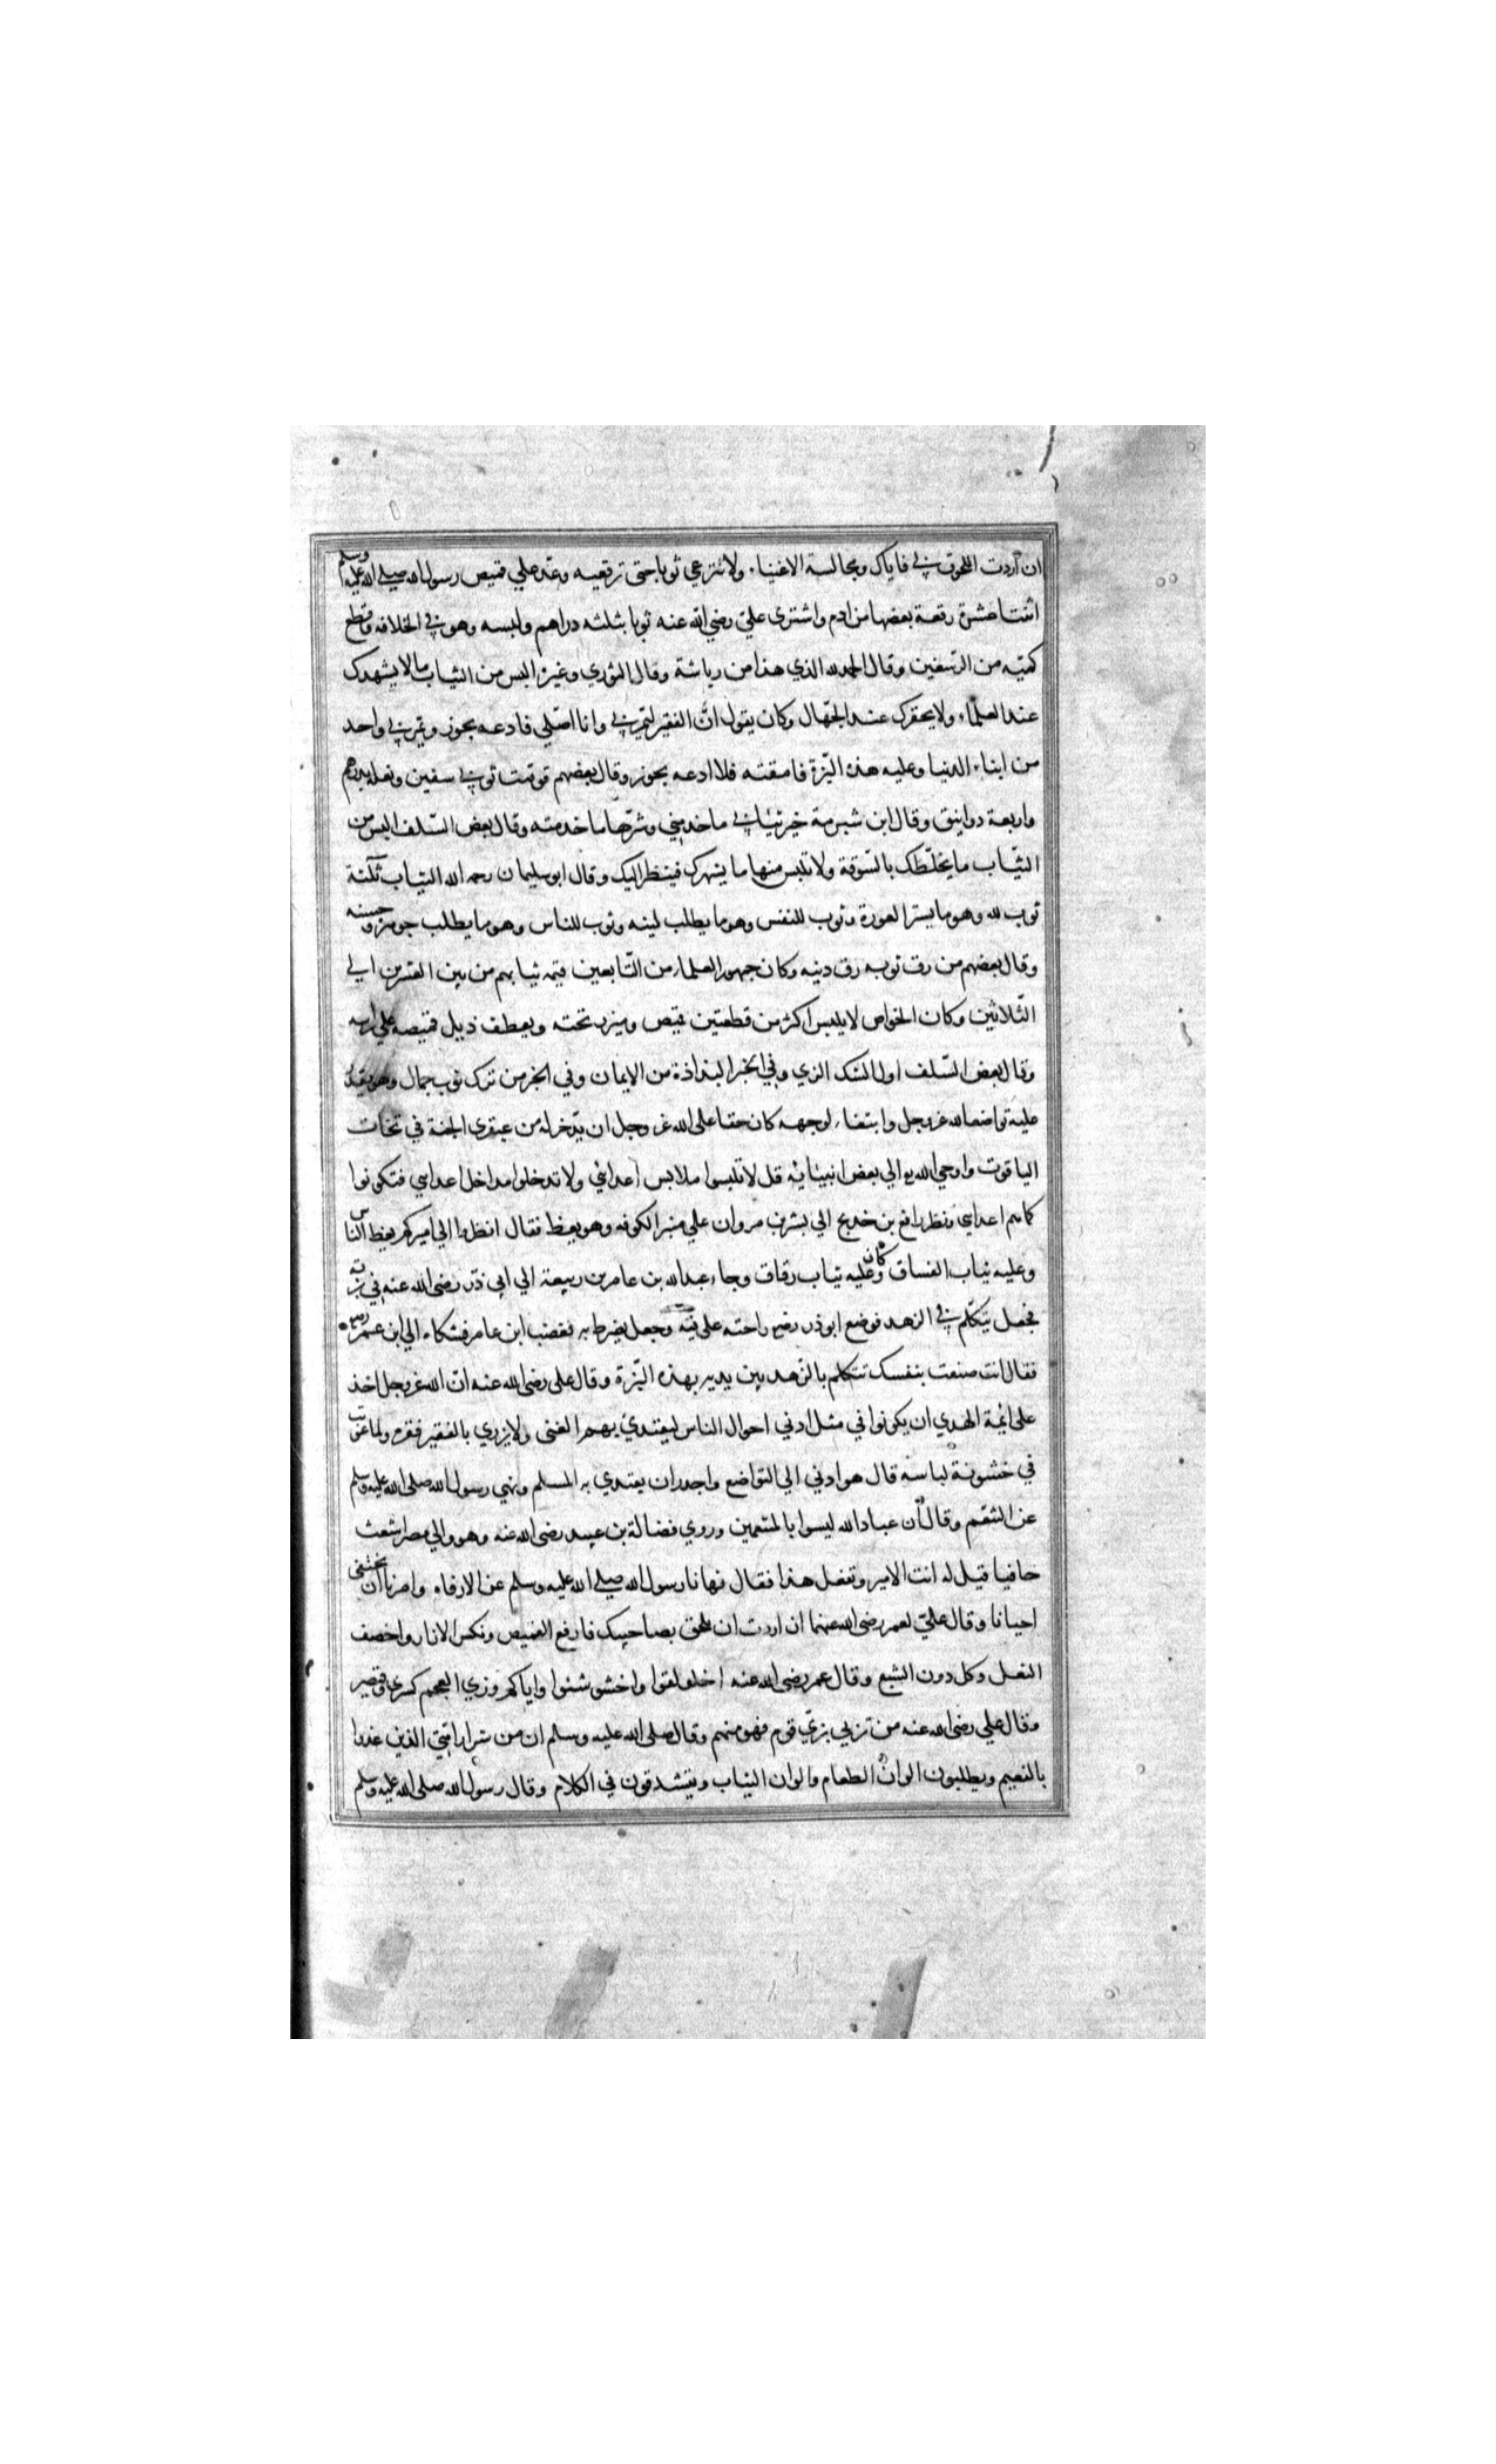 ان اردت اللحوق بي فاياك ومجالسة الاغنياء ولا تنزعي ثوبا حتى ترقعيه وعد علي قميص رسول الله صلي الله عليه وسلم
اثنتا عشرة رقعة بعضها من ادم واشترى علي رضي الله عنه ثوبا بثلثه دراهم ولبسه وهو في الخلافه وقطع
كميه من الرسغين وقال الحمد لله الذي هذا من رياشة وقال الثوري وغيره البس من الثياب مالا يشهرك
عند العلماء ولا يحقرك عند الجهال وكان يقول ان الفقير ليمر بي وانا اصلي فادعه يجوز ويمر بي واحد
من ابناء الدنيا وعليه هذه البزة فامقته فلا ادعه يجوز وقال بعضهم قومت ثوبي سفين ونعليه بدرهم
واربعة دوانيق وقال ابن شبرمة خير ثيابي ما خدمني وشرها ما خدمته وقال بعض السلف البس من
الثياب ما يخلطك بالسوقة ولا تلبس منها ما يشهرك فينظر اليك وقال ابو سليمان رحمه الله الثياب ثلثة
ثوب لله وهو ما يستر العورة وثوب للنفس وهو ما يطلب لينه وثوب للناس وهو ما يطلب جوهره وحسنه
وقال بعضهم من رق ثوبه رق دينه وكان جمهور العلماء من التابعين قيمه ثيابهم من بين العشرين الي
الثلاثين وكان الخواص لا يلبس اكثر من قطعتين قميص وميزر تحته ويعطف ذيل قميصه علي راسه
وقال بعض السلف اول النسك الزي وفي الخبر البذاذة من الايمان وفي الخبر من ترك ثوب جمال وهو يقدر
عليه تواضعا لله عز وجل وابتغاء لوجهه كان حقا على الله عز وجل ان يدخر له من عبقري الجنة في تخات
الياقوت واوحي الله الي بعض انبيائه قل لا تلبسوا ملابس اعدائي ولا تدخلوا مداخل اعدايي فتكونوا
كما هم اعدايي ونظر رافع بن خديج الي بشر بن مروان علي منبر الكوفه وهو يعظ فقال انظروا الي اميركم يعظ الناس
وعليه ثياب الفساق وكان عليه ثياب رقاق وجاء عبد الله بن عامر بن ربيعة الي ابي ذر رضى الله عنه في بزته
فجعل يتكلم في الزهد فوضع ابو ذر رضي راحته على فيه وجعل يضرط به فغضب ابن عامر فشكاه الي ابن عمر رضي
فقال انت صنعت بنفسك تتكلم بالزهد بين يديه بهذه البزة وقال على رضى الله عنه ان الله عز وجل اخذ
على ائمة الهدي ان يكونوا في مثل ادني احوال الناس ليقتدي بهم الغنى ولا يزري بالفقير فقره ولما عوتب
في خشونة لباسه قال هو ادني الي التواضع واجدر ان يقتدي به المسلم ونهي رسول الله صلى الله عليه وسلم
عن التنعم وقال ان عباد الله ليسوا بالمتنعمين وروي فضالة بن عبيد رضى الله عنه وهو والي مصر اشعث
حافيا قيل له انت الامير وتفعل هذا فقال نهانا رسول الله صلي الله عليه وسلم عن الارفاه وامرنا ان نحتفى
احيانا وقال علي لعمر رضى الله عنهما ان اردت ان تلحق بصاحبيك فارفع القميص ونكس الازار واخصف
النعل وكل دون الشبع وقال عمر رضى الله عنه اخلولقوا واخشوشنوا واياكم وزي العجم كسري وقيصر
وقال علي رضى الله عنه من تزيي بزي قوم فهو منهم وقال صلى الله عليه وسلم ان من شرار امتي الذين غذوا
بالنعيم ويطلبون الوان الطعام والوان الثياب ويتشدقون في الكلام وقال رسول الله صلى الله عليه وسلم